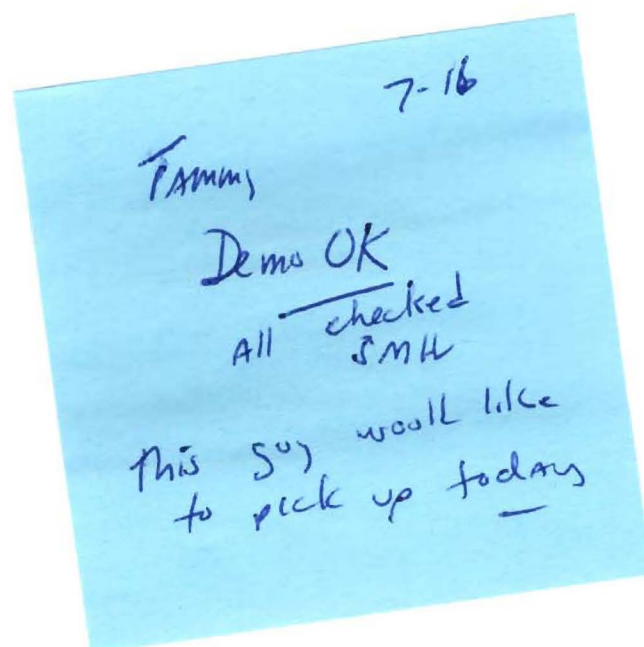 7-16
Tammy
Demo OK
All checked
SMH
this guy would like
to pick up today